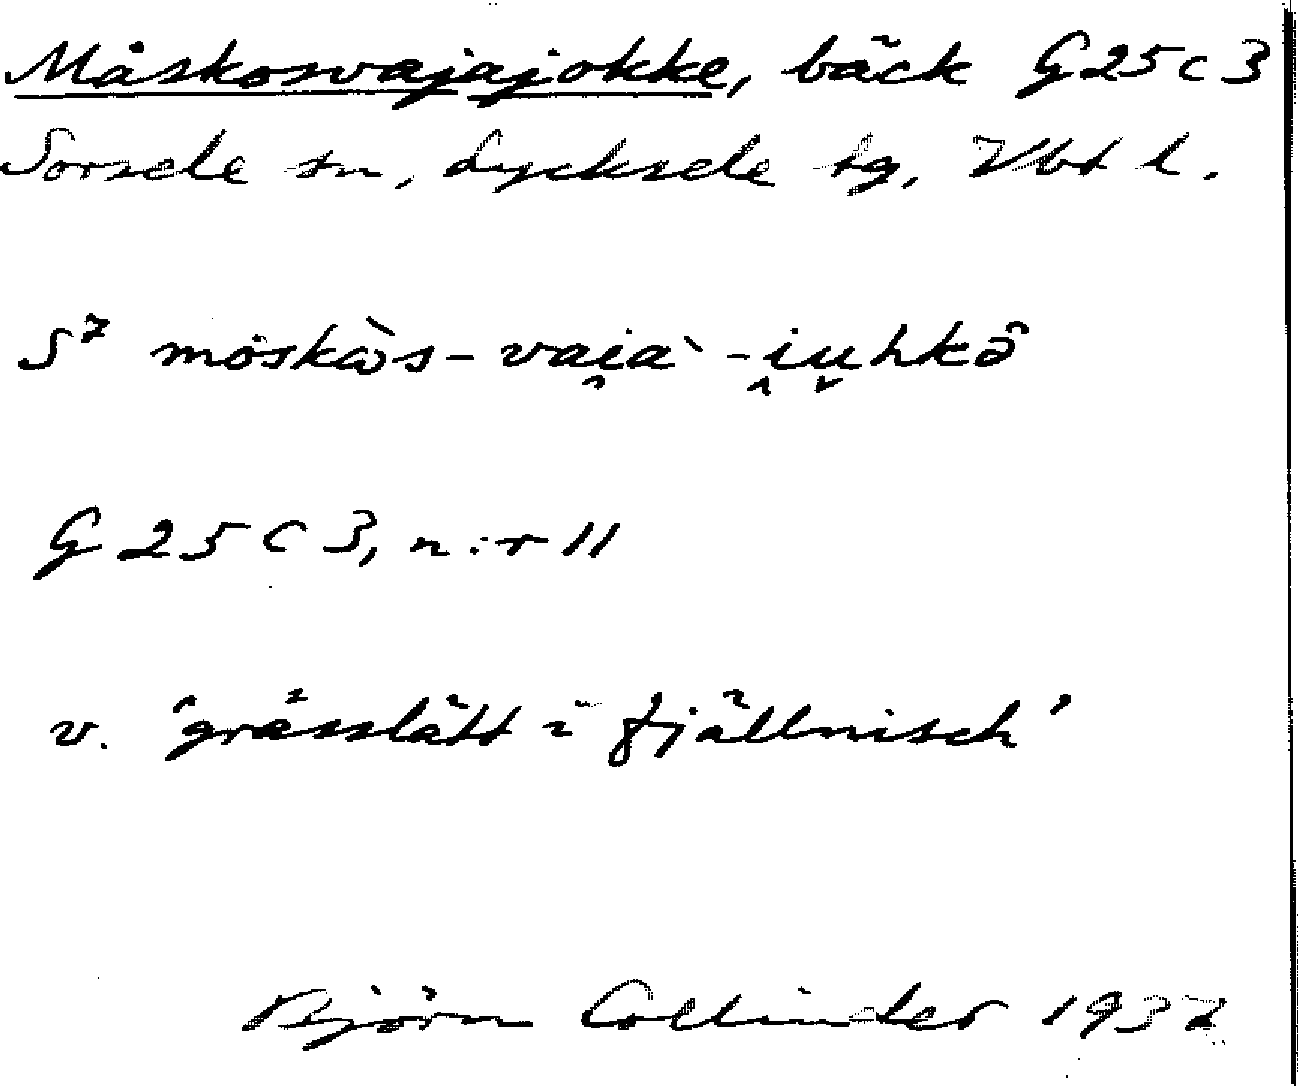 Måskosvajajokke, bäck G 25 c 3
Sorsele sn, Lycksele tg, Vbt l.
S⁷ möskὰs- vai̯a` -i̯u̬hkə̂
G 25 C 3, n:r 11
v. 'grässlätt i fjällnisch'
Björn Collinder 1937